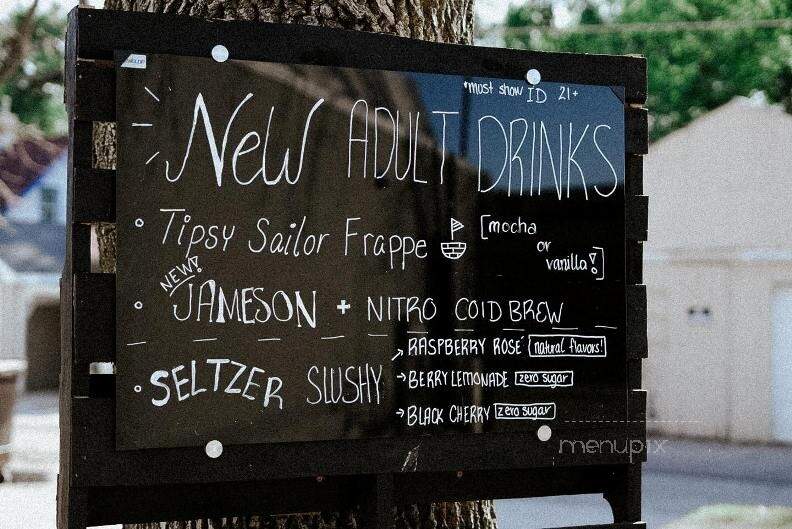 *most show ID 21+
NeW ADULT DRINKS
Tipsy Sailor Frappe [mocha
or
vanilla!]
NEW!
JAMESON + NITRO COLD BREW
RASPBERRY ROSÉ natural flavors!
SELTZER SLUSHY → BERRY LEMONADE zero sugar
→ BLACK CHERRY zero sugar
menupix